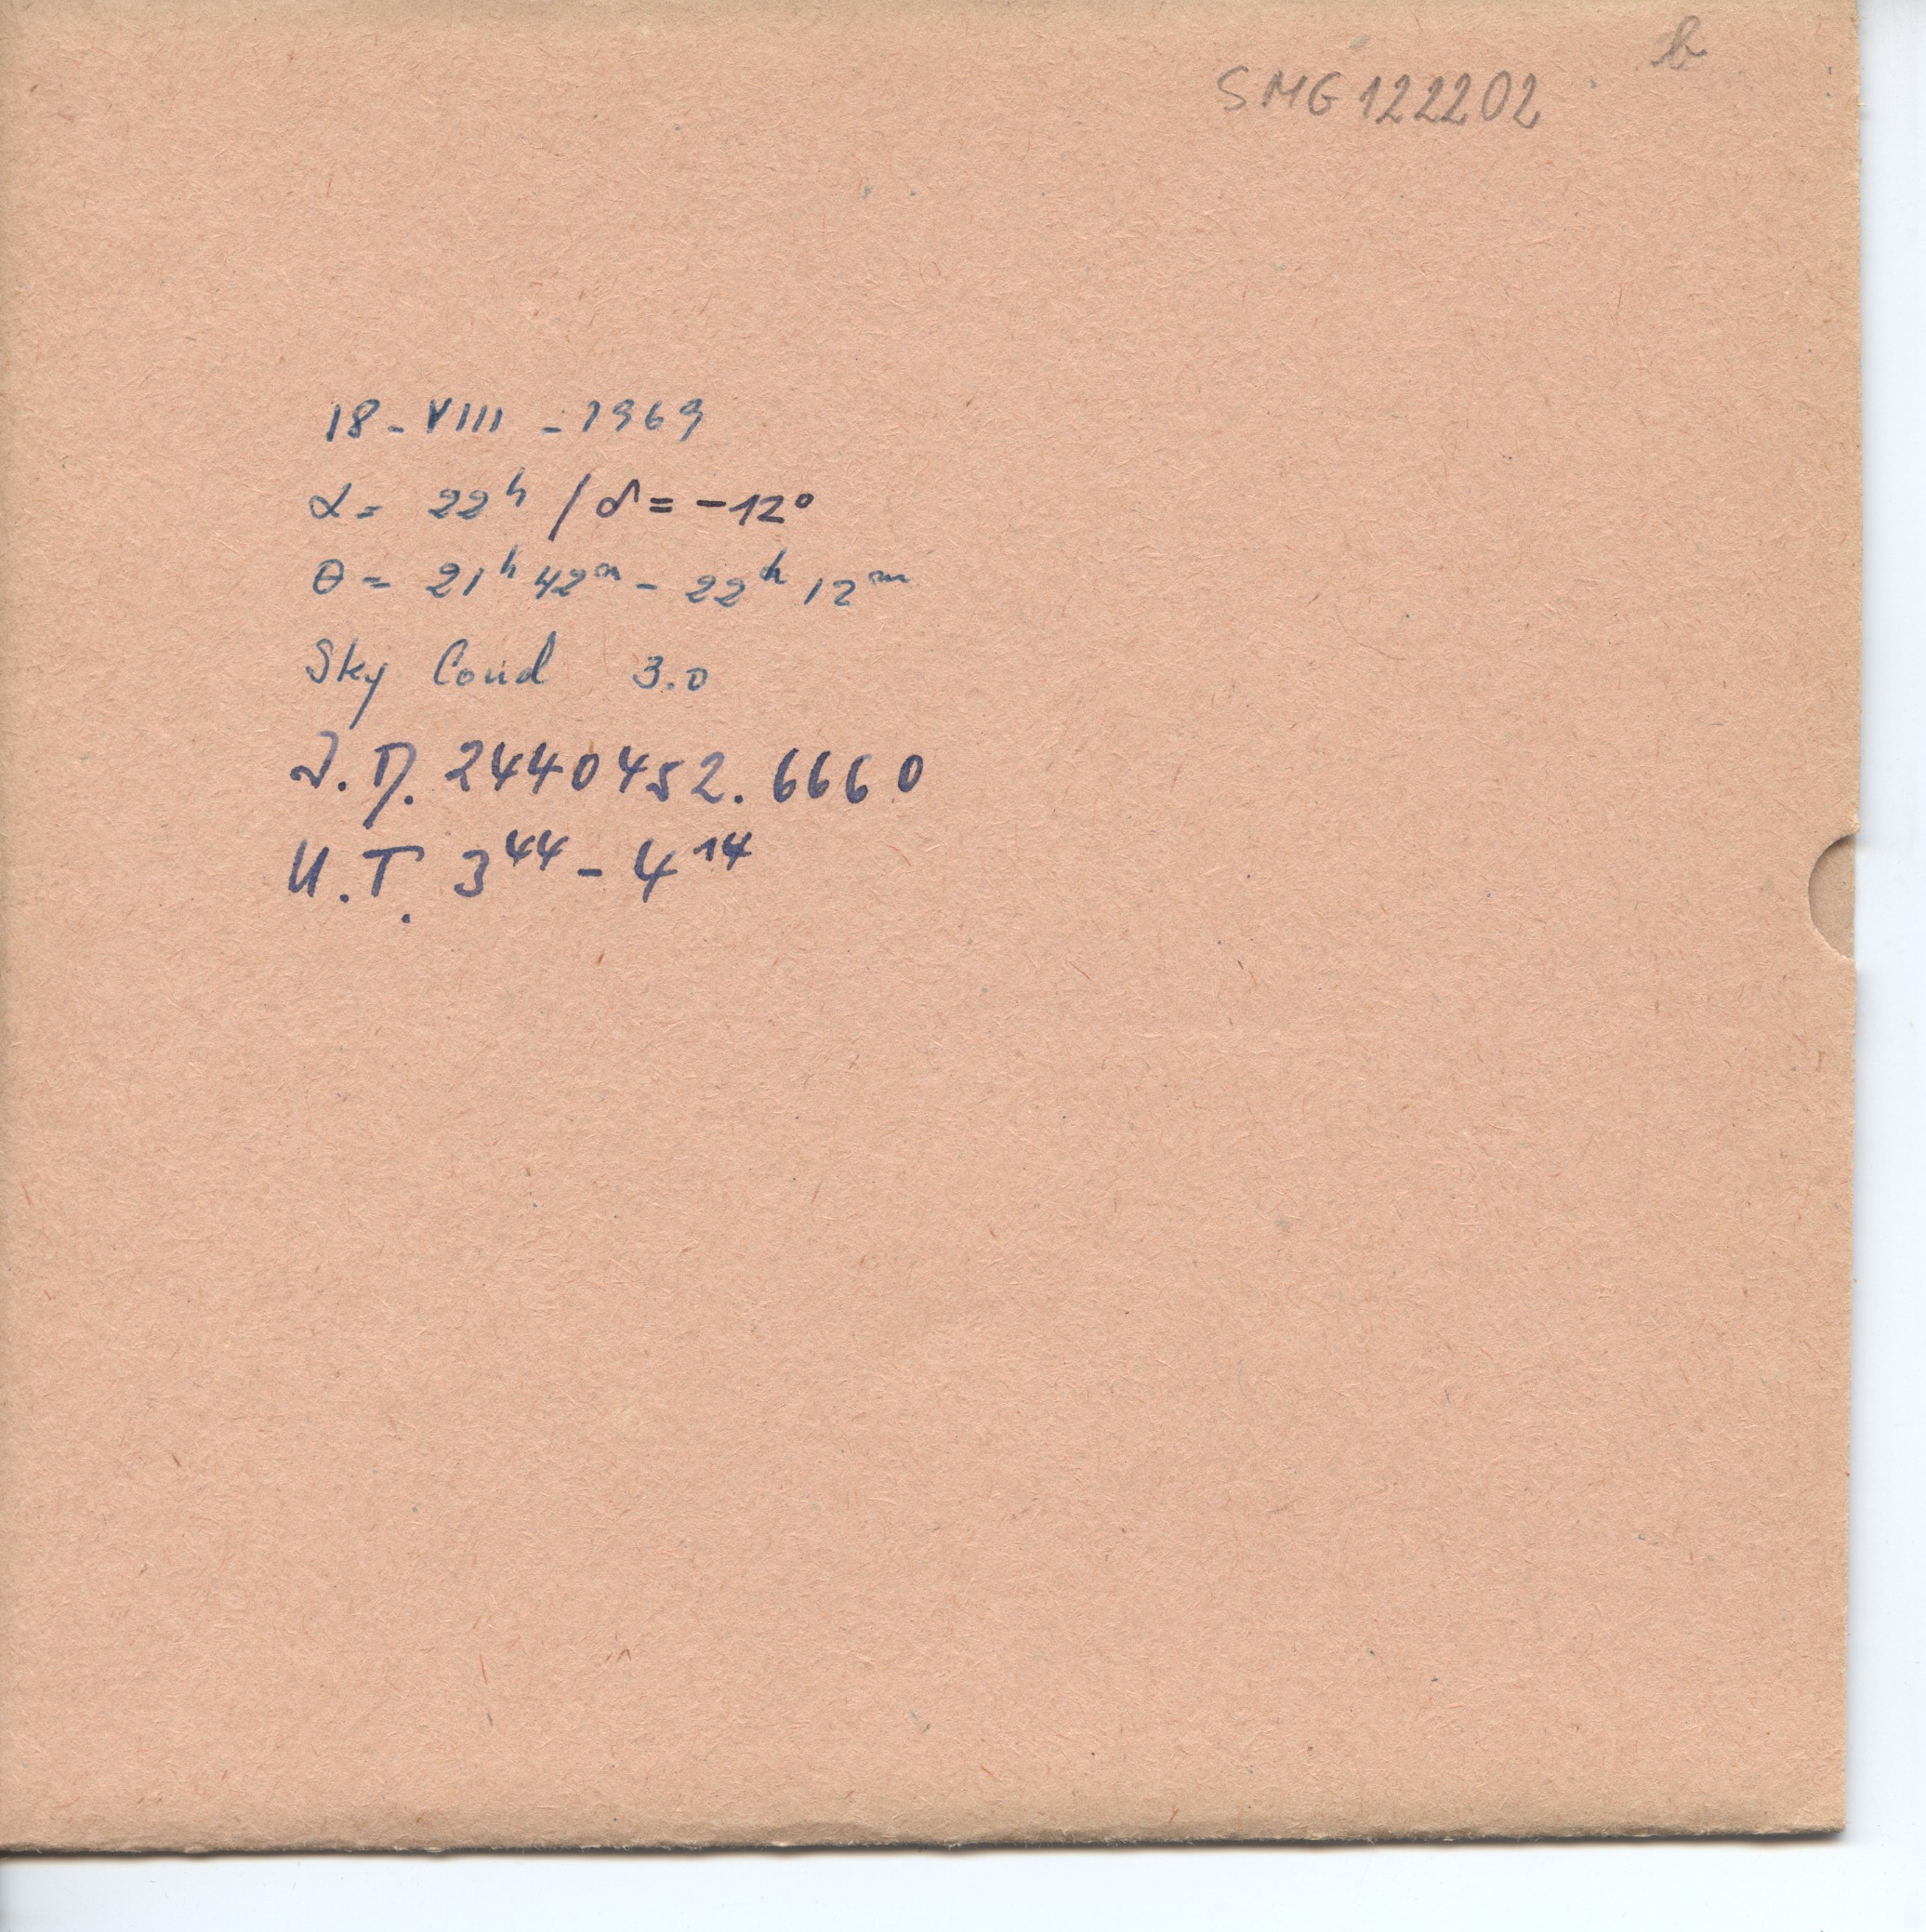 b
SMG 122202
18-VIII-1969
α = 22ʰ / δ = -12°
θ = 21ʰ 42ᵐ - 22ʰ 12ᵐ
Sky Cond 3.0
J.D. 2440452.6660
U.T. 3⁴⁴ - 4¹⁴